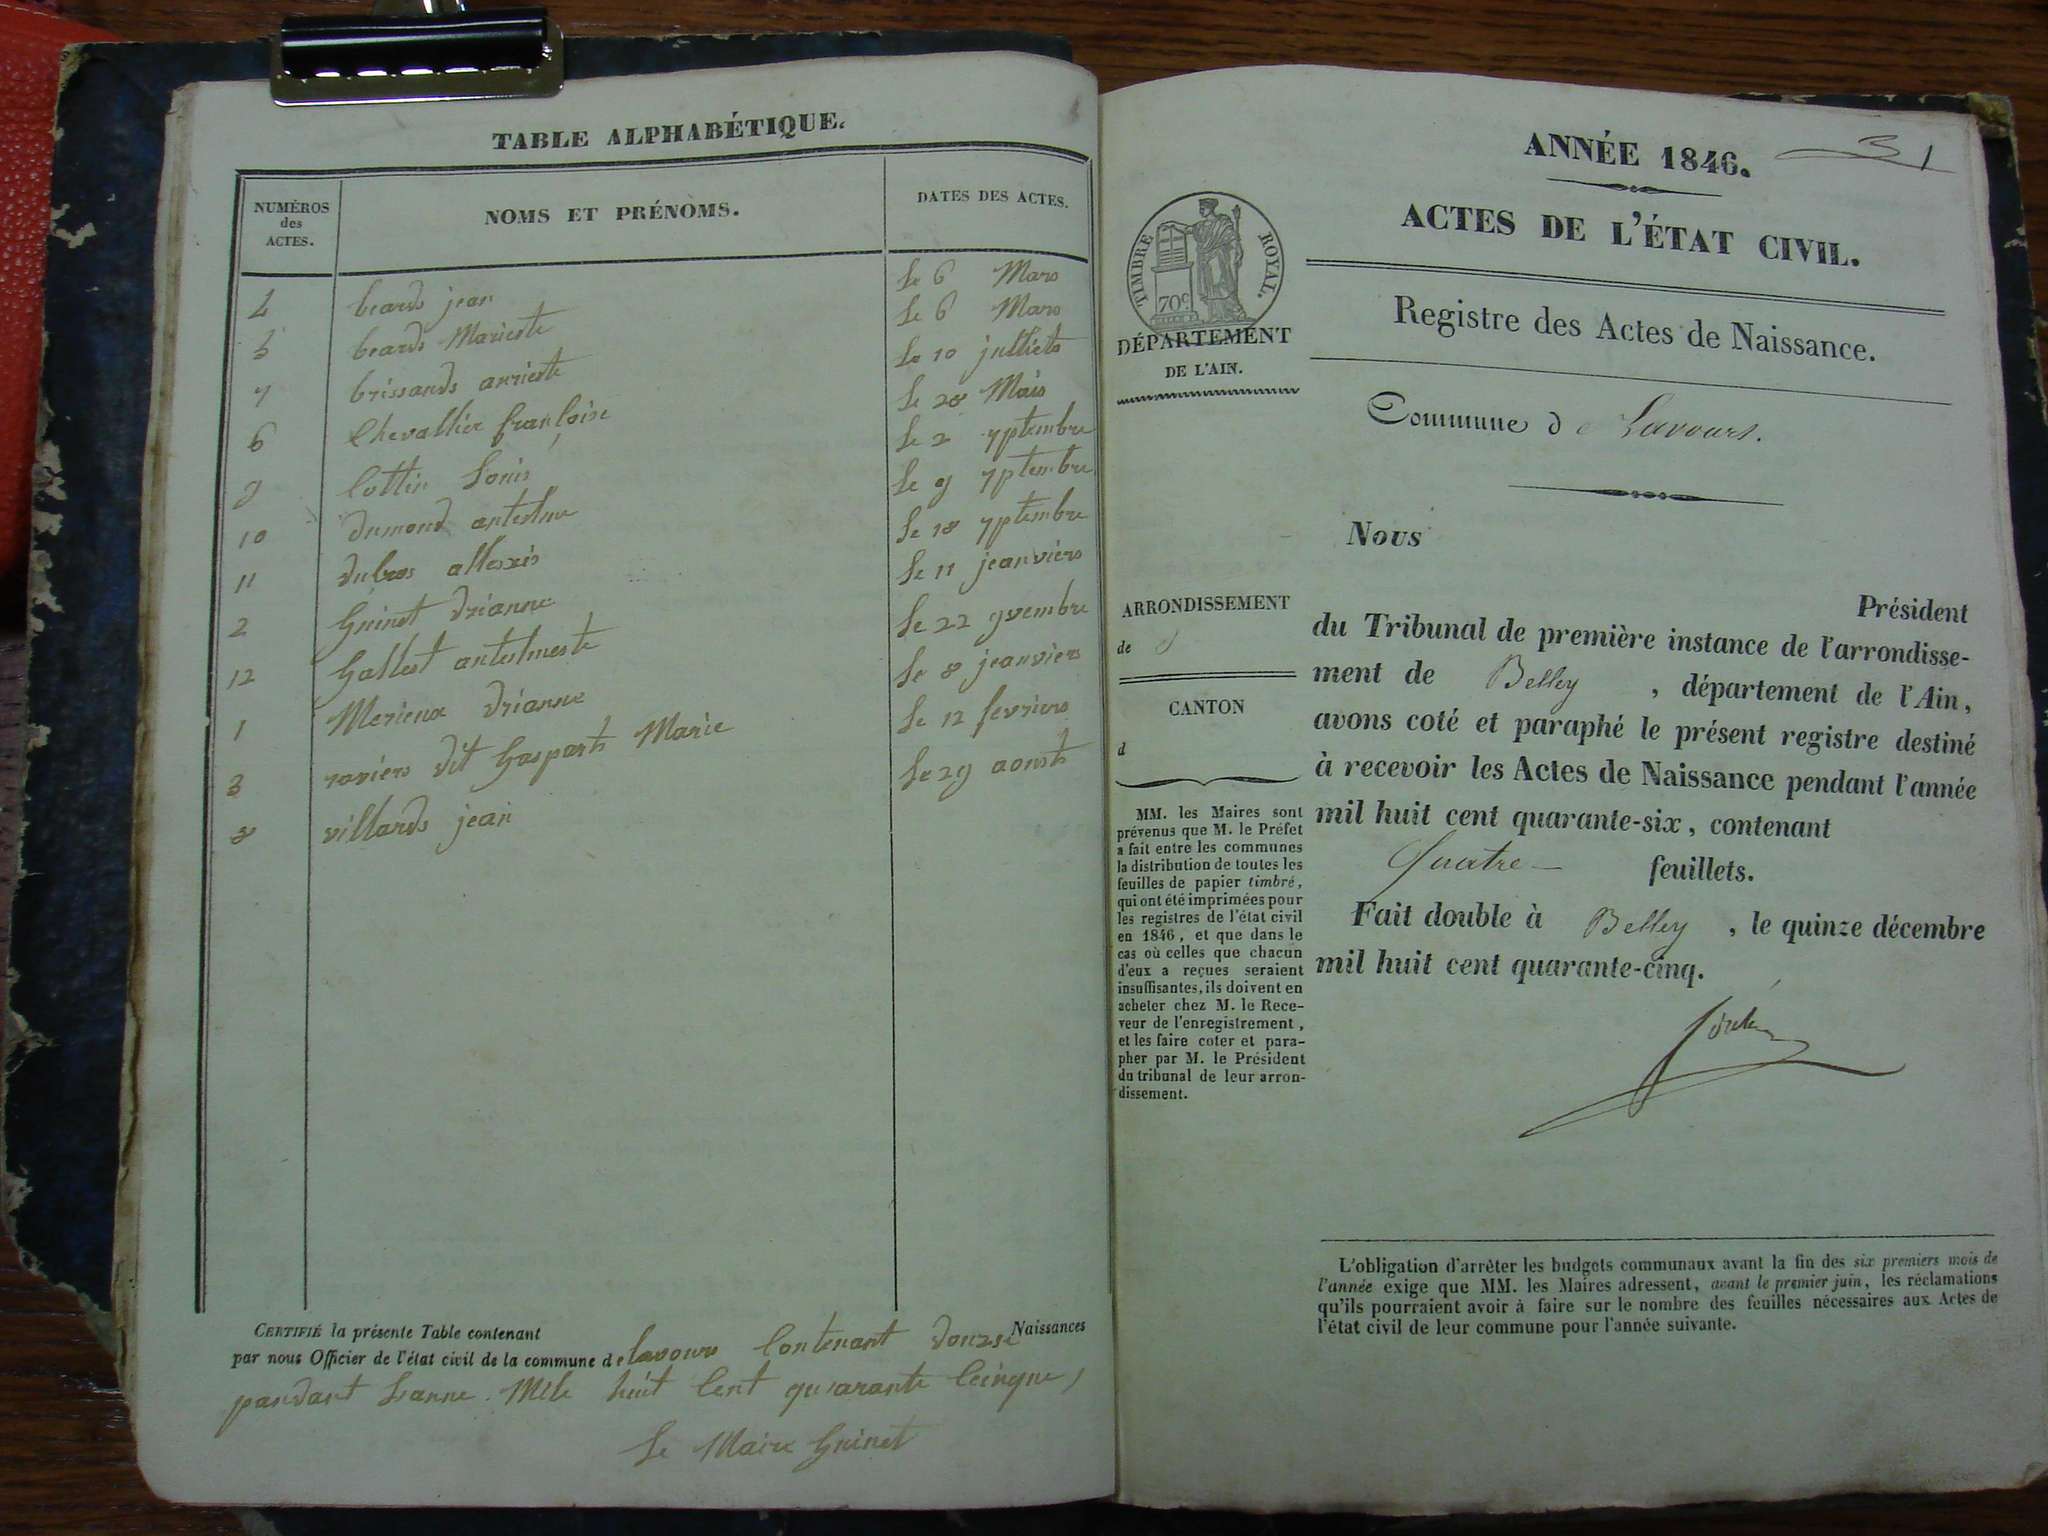 TABLE ALPHABÉTIQUE.
NUMÉROS des ACTES. NOMS ET PRÉNOMS. DATES DES ACTES.
4 beards jean le 6 Mars
5 beards Marieste le 6 Mars
7 brissands anrieste le 10 julliets
6 Chevallier françoise le 28 Mais
9 Cottin Louis le 2 7ptembre
10 dumond antelme le 9 7ptembre
11 dubros allexis le 18 7ptembre
2 Guinet drianne le 11 jeanviers
12 Gallest antelmeste le 22 9vembre
1 Merieux drianne le 8 jeanviers
3 raviers dit Gasparts Marie le 12 fevriers
8 villards jean le 29 aousts
CERTIFIÉ la présente Table contenant Naissances
par nous Officier de l'état civil de la commune de lavours Contenant douzse
pandant Lanne Mile huit Cent quarante Ceinque,
Le Maire Guinet
ANNÉE 1846. 1
ACTES DE L'ÉTAT CIVIL.
TIMBRE ROYAL.
70c
DÉPARTEMENT
DE L'AIN.
Registre des Actes de Naissance.
Commune de Lavours.
Nous
Président
ARRONDISSEMENT
de
CANTON
d
du Tribunal de première instance de l'arrondisse-
ment de Belley, département de l'Ain,
avons coté et paraphé le présent registre destiné
à recevoir les Actes de Naissance pendant l'année
mil huit cent quarante-six, contenant
Quatre feuillets.
Fait double à Belley, le quinze décembre
mil huit cent quarante-cinq.
MM. les Maires sont
prévenus que M. le Préfet
a fait entre les communes
la distribution de toutes les
feuilles de papier timbré,
qui ont été imprimées pour
les registres de l'état civil
en 1846, et que dans le
cas où celles que chacun
d'eux a reçues seraient
insuffisantes, ils doivent en
acheter chez M. le Rece-
veur de l'enregistrement,
et les faire coter et para-
pher par M. le Président
du tribunal de leur arron-
dissement.
L'obligation d'arrêter les budgets communaux avant la fin des six premiers mois de
l'année exige que MM. les Maires adressent, avant le premier juin, les réclamations
qu'ils pourraient avoir à faire sur le nombre des feuilles nécessaires aux Actes de
l'état civil de leur commune pour l'année suivante.